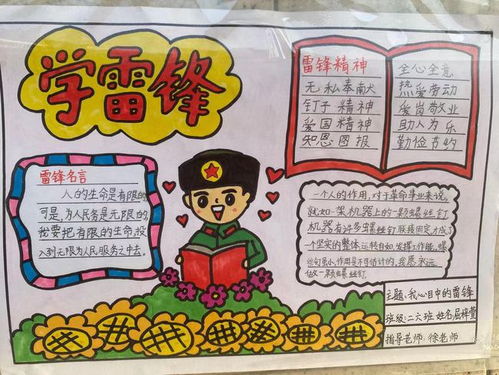 学雷锋
雷锋精神
无私奉献
钉子精神
爱国精神
知恩图报
全心全意
热爱劳动
爱岗敬业
助人为乐
勤俭节约
雷锋名言
人的生命是有限的
可是,为人民服务是无限的
我要把有限的生命,投
入到无限为人民服务之中去.
一个人的作用,对于革命事业来说,
就如一架机器上的一颗螺丝钉
机器有许多螺丝钉联接固定才成了
一个坚实的整体,运转自如,发挥工作能。螺
丝钉虽小,作用是不可估计的,我愿永远
做一颗螺丝钉
主题:我心目中的雷锋
班级:二六班 姓名:屈梓萱
指导老师 徐老师